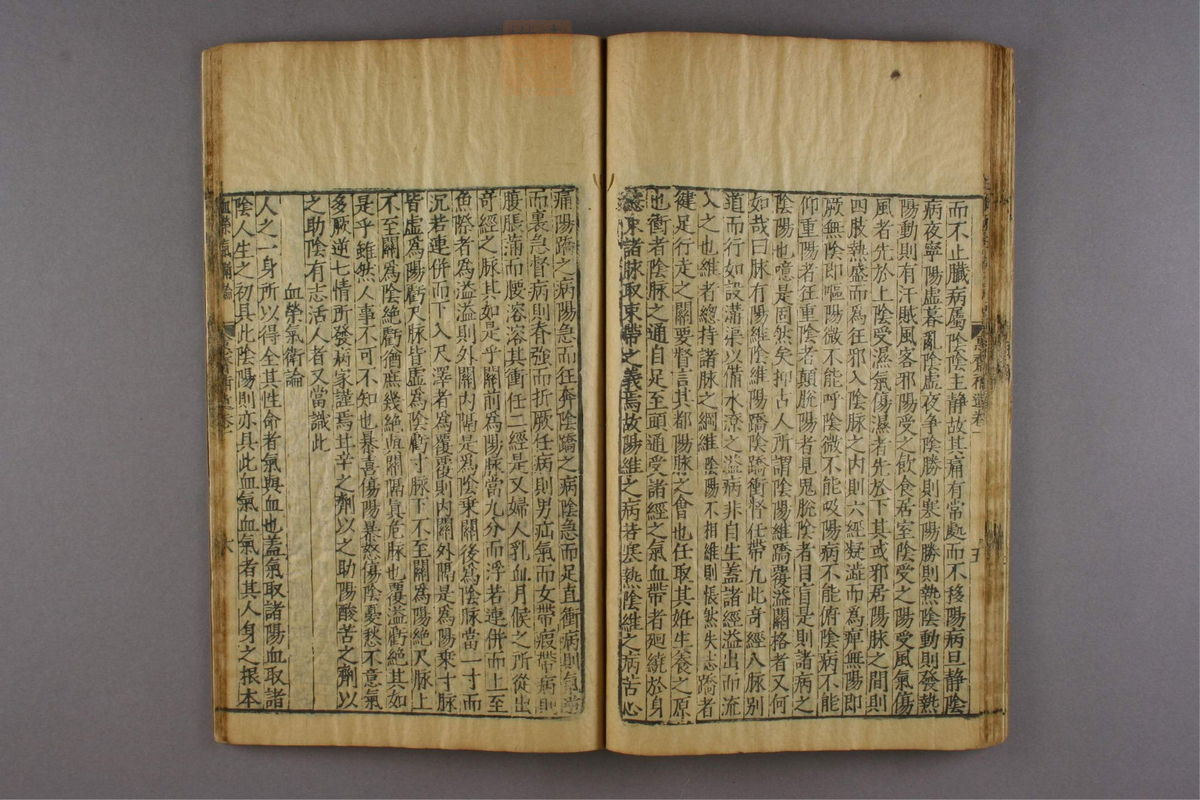 而不止臟病屬陰陰主静故其痛有常處而不移陽病旦静陰
病夜寧陽虚暮亂陰虚夜争陰勝則寒陽勝則熱陰動則發熱
陽動則有汗賊風客邪陽受之飲食居室陰受之陽受風氣傷
風者先於上陰受濕氣傷濕者先於下其或邪居陽脉之間則
四肢熱盛而為狂邪入陰脉之内則六經凝澁而為痺無陽即
厥無陰即嘔陽微不能呼陰微不能吸陽病不能俯陰病不能
仰重陽者狂重陰者顛脫陽者見鬼脫陰者目盲是則諸病之
陰陽也噫是固然矣抑古人所謂陰陽維蹻覆溢關格者又何
如哉曰脉有陽維陰維陽蹻陰蹻衝督任帶凢此奇經八脉别
道而行如設溝渠以備水潦之溢病非自生蓋諸經溢出而流
入之也維者總持諸脉之綱維陰陽不相維則悵然失志蹻者
健足行走之關要督言其都陽脉之會也任取其姙生養之原
也衝者陰脉之通自足至頭通受諸經之氣血帶者廻繞於身
總束諸脉取束帶之義焉故陽維之病若寒熱陰維之病苦心
痛陽蹻之病陽急而狂奔陰蹻之病陰急而足直衝病則氣逆
而裏急督病則脊強而折厥任病則男疝氣而女帶瘕帶病則
腹脹滿而腰溶溶其衝任二經是又婦人乳血月候之所從出
竒經之脉其如是乎關前為陽脉當九分而浮若連併而上至
魚際者為溢溢則外關内隔是為陰乗關後為陰脉當一寸而
沉若連併而下入尺澤者為覆覆則内關外隔是為陽乗寸脉
皆虚為陽虧尺脉皆虚為陰虧寸脉下不至關為陽絶尺脉上
不至關為陰絶虧猶庶幾絶與關隔真危脉也覆溢虧絶其如
是乎雖然人事不可不知也暴喜傷陽暴怒傷陰憂愁不意氣
多厥逆七情所發病家謹焉甘辛之劑以之助陽酸苦之劑以
之助陰有志活人者又當識此
血榮氣衛論
人之一身所以得全其性命者氣與血也蓋氣取諸陽血取諸
陰人生之初具此陰陽則亦具此血氣血氣者其人身之根本